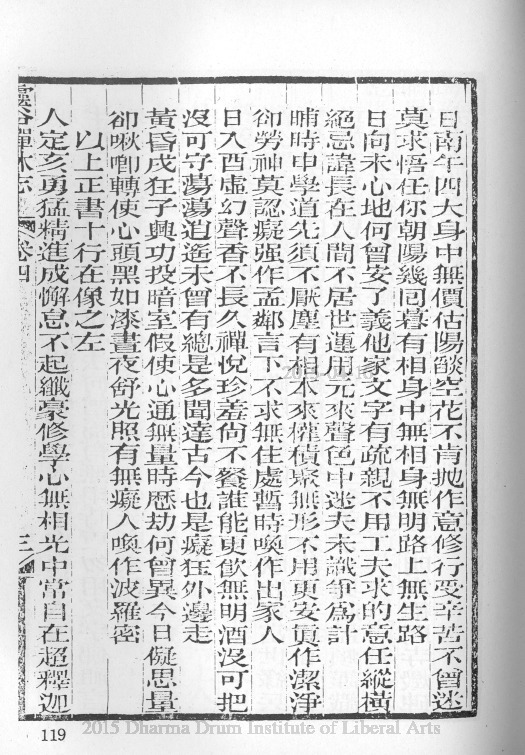 日南午四大身中無價估陽燄空花不肯拋作意修行受辛苦不曾迷
莫求悟任你朝陽幾回暮有相身中無相身無明路上無生路
日向未心地何曾安了義他家文字有疏親不用工夫求的意任縱橫
絕忌諱長在人間不居世運用元來聲色中迷夫未識爭為計
晡時申學道先須不厭塵有相本來權積聚無形不用更安眞作潔淨
卻勞神莫認癡强作孟鄰言下不求無住處暫時喚作出家人
日入酉虛幻聲香不長久禪悅珍羞尚不餐誰能更飲無明酒沒可把
沒可守蕩蕩逍遙未曾有總是多聞達古今也是癡狂外邊走
黃昏戌狂子興功投暗室假使心通無量時歷劫何曾異今日儗思量
卻啾唧轉使心頭黑如漆晝夜舒光照有無癡人喚作波羅密
以上正書十行在像之左
人定亥勇猛精進成懈怠不起纖豪修學心無相光中常自在超釋迦
靈谷禪林志 卷四 三
119
2015 Dharma Drum Institute of Liberal Arts